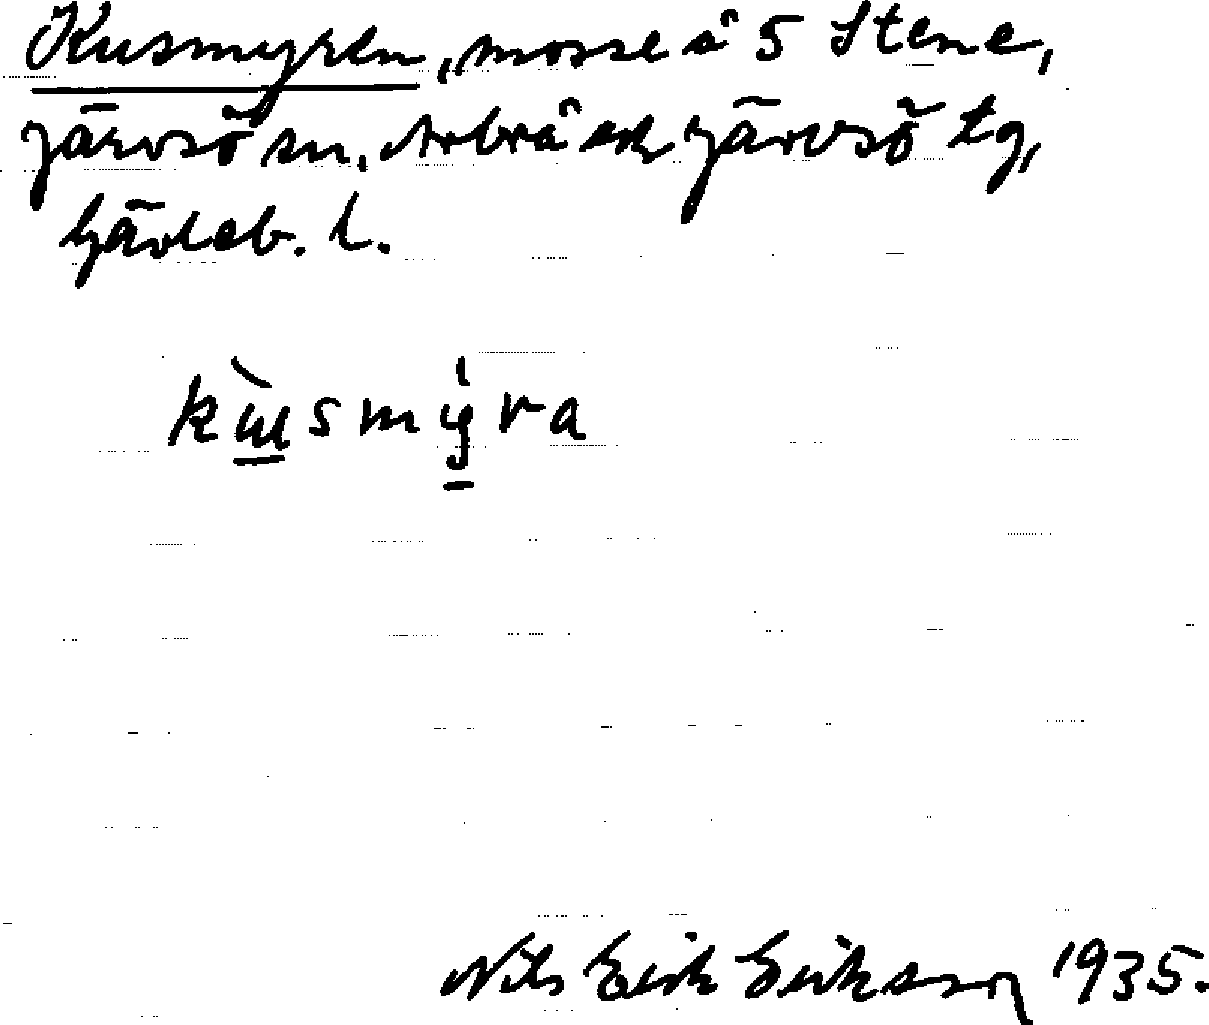 Kusmyren, mosse å 5 Stene,
Järvsö sn. Arbrå ock Järvsö tg,
Gävleb. l.
kùsmýra
Nils Erik Eriksson 1935.